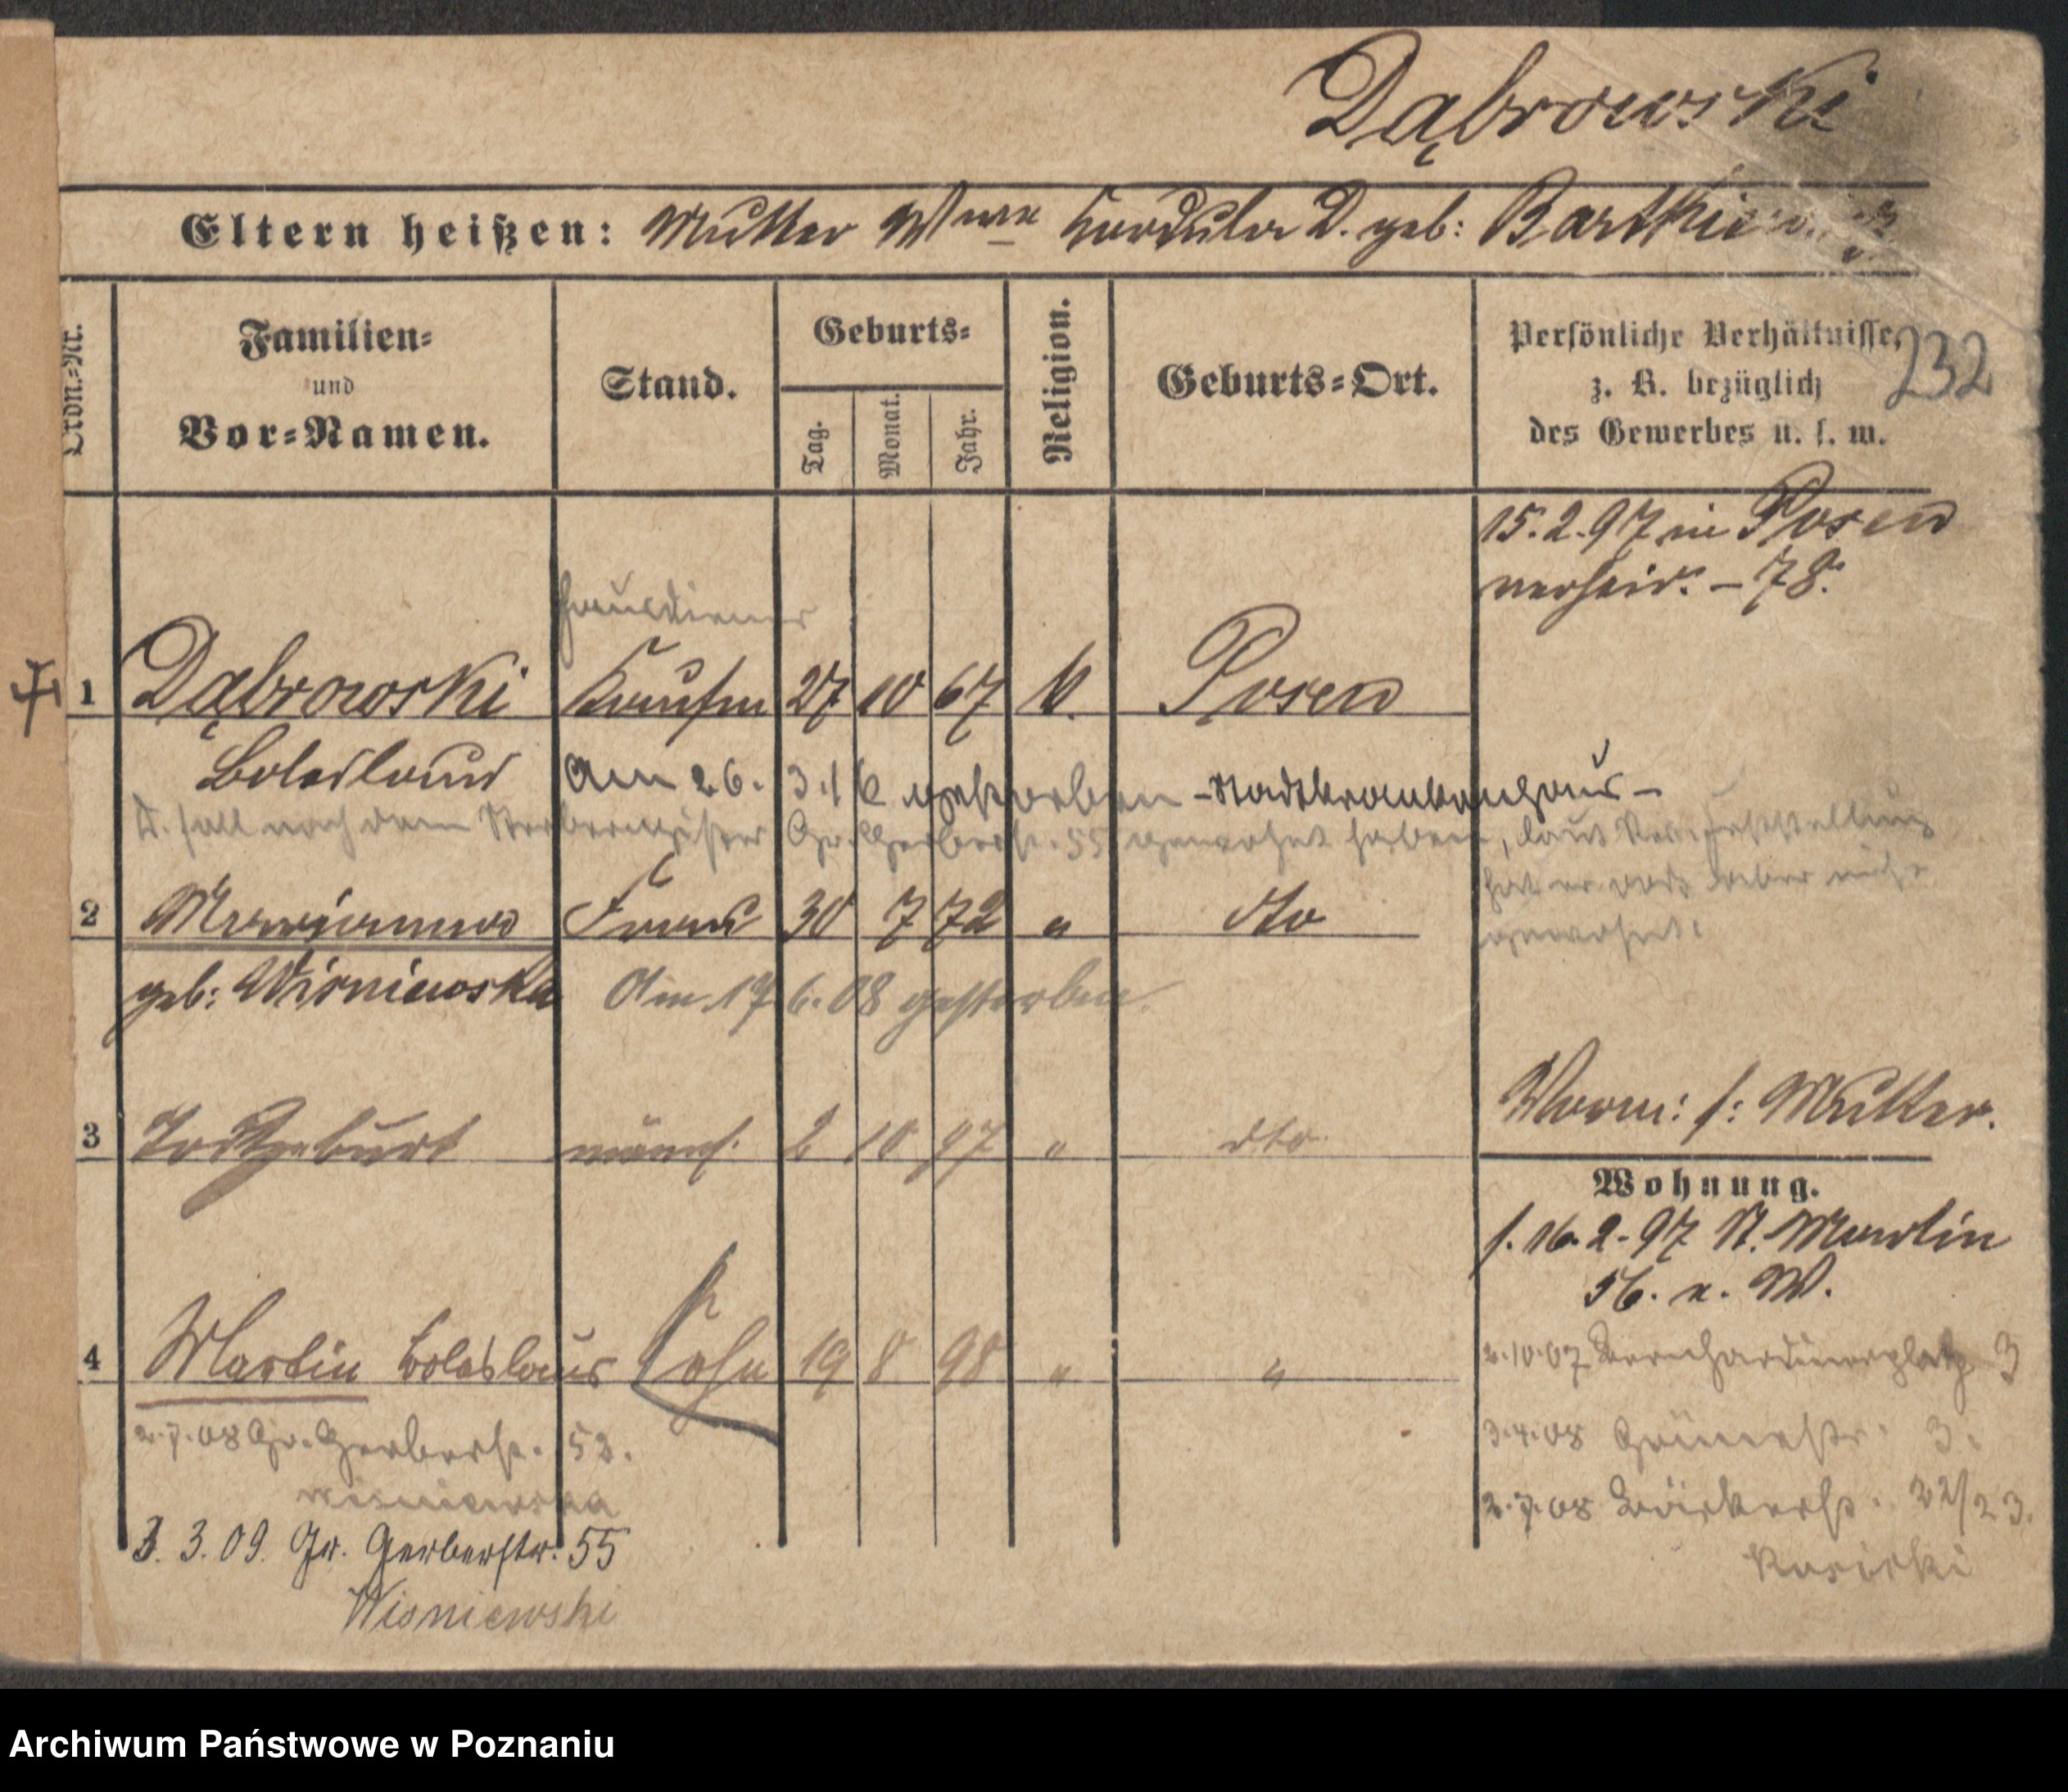 Dąbrowski
Eltern heißen: Mutter Wwe Kordula D. geb: Bartkiewicz
Ordn.-Nr.
Familien- und Vor-Namen.
Stand.
Geburts-
Tag.
Monat.
Jahr.
Religion.
Geburts-Ort.
Persönliche Verhältnisse, z. B. bezüglich des Gewerbes u. s. w.
232
15.2.97 in Posen
verheir. – 78.
Hausdiener
1 Dąbrowski Kaufm 27 10 67 k. Posen
Boleslaus Am 26. 3.16 gestorben – Stadtkrankenhaus –
D. soll nach dem Sterberegister Gr. Gerberstr. 55 gewohnt haben, laut Feststellung
hat er dort aber nicht
gewohnt.
2 Marianna Frau 30 7 72 " dto
geb: Wisniewska Am 17 6. 08 gestorben.
3 Todtgeburt männl. 2 10 97 " dto
Vorm: s: Mutter.
Wohnung.
s. 16.2.97 St. Martin
56. n. W.
4 Martin Boleslaus Sohn 19 8 98 " "
2.10.07 Bernhardinerplatz 3
3.4.08 Grünestr. 3.
2.7.08 Gr. Gerberstr. 53.
Wisniewska
2.7.08 Bäckerstr. 22/23.
Kasirki
3. 3. 09. Gr. Gerberstr. 55
Wisniewski
Archiwum Państwowe w Poznaniu